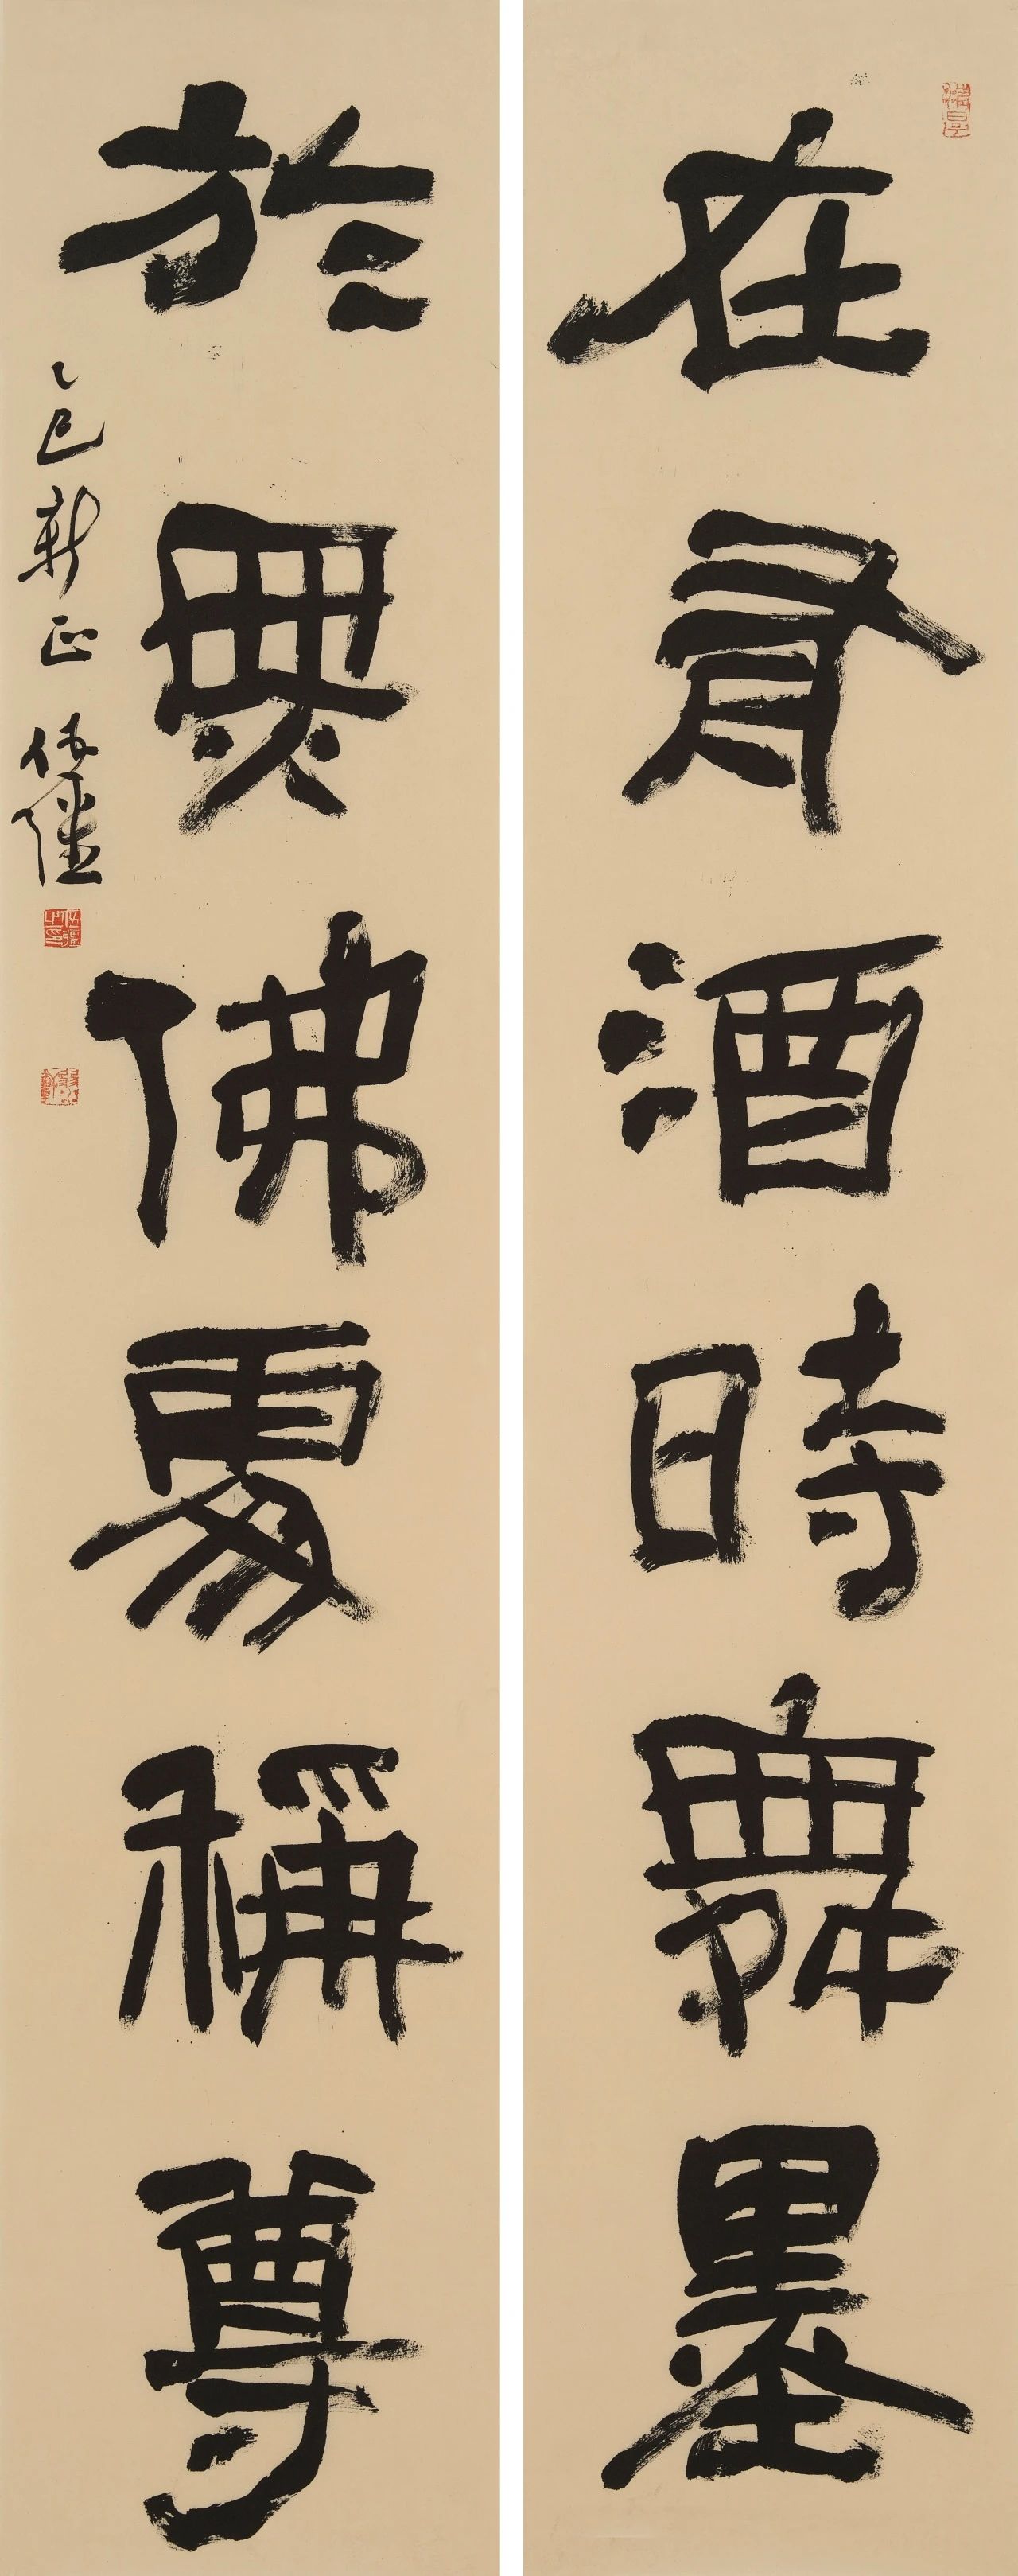 在有酒時舞墨
於無佛處稱尊
乙巳新正 伍強